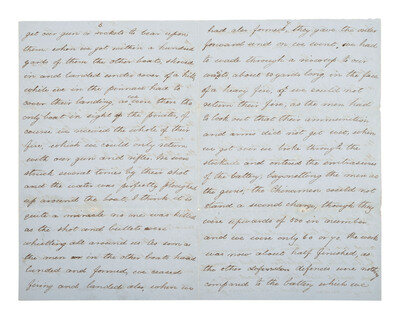 6
get our gun & rockets to bear upon
them when we got within a hundred
yards of them the other boats sheered
in and landed under cover of a hill
while we in the pinnace had to
cover their landing as we were then the
only boat in sight of the pirates, of
course we received the whole of their
fire, which we could only return
with our gun and rifles. We were
struck several times by their shot
and the water was perfectly ploughed
up around the boat, I think it is
quite a miracle no one was killed
as the shot and bullets were
whistling all around us. As soon as
the men in the other boats had
landed and formed, we ceased
firing and landed also, when we
7
had also formed, they gave the order
forwards and on we went, we had
to wade through a up to our
waists, about 50 yards long in the face
of a heavy fire, of we could not
return their fire, as the men had
to look out that their ammunition
and arms did not get wet, when
we got over we broke through the
stockade and entered the embrasures
of the battery, bayonetting the men at
the guns, the Chinamen could not
stand a second charge, though they
were upwards of 500 in number
and we were only 60 or 70. the work
was now about half finished, as
the other defences were nothing
compared to the battery which we